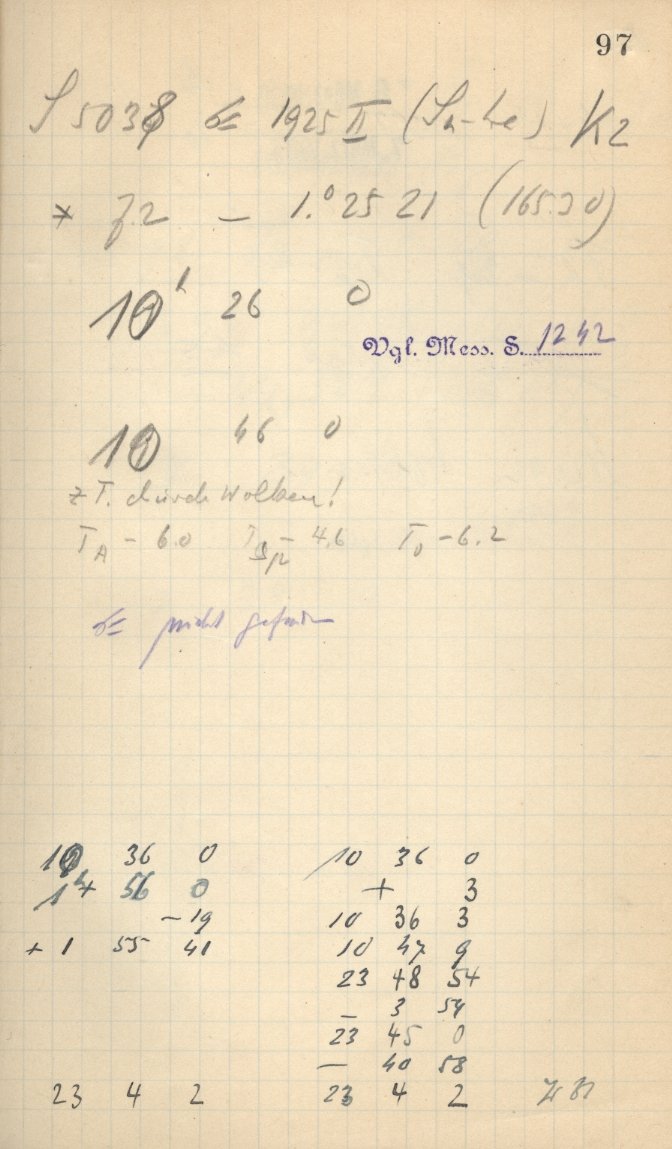 97
S 5038 1925 II (Sh-Le) K2
* 7.2 – 1.° 25 21 (165.20)
10ʰ 26 0
Vgl. Mess. S. 1242
10 46 0
z T. durch Wolken!
T_A – 6.0 T_Sp – 4.6 T_0 – 6.2
nicht gefunden
10 36 0
1ʰ+ 56 0
– 19
+ 1 55 41
23 4 2
10 36 0
+ 3
10 36 3
10 47 9
23 48 54
– 3 54
23 45 0
– 40 58
23 4 2